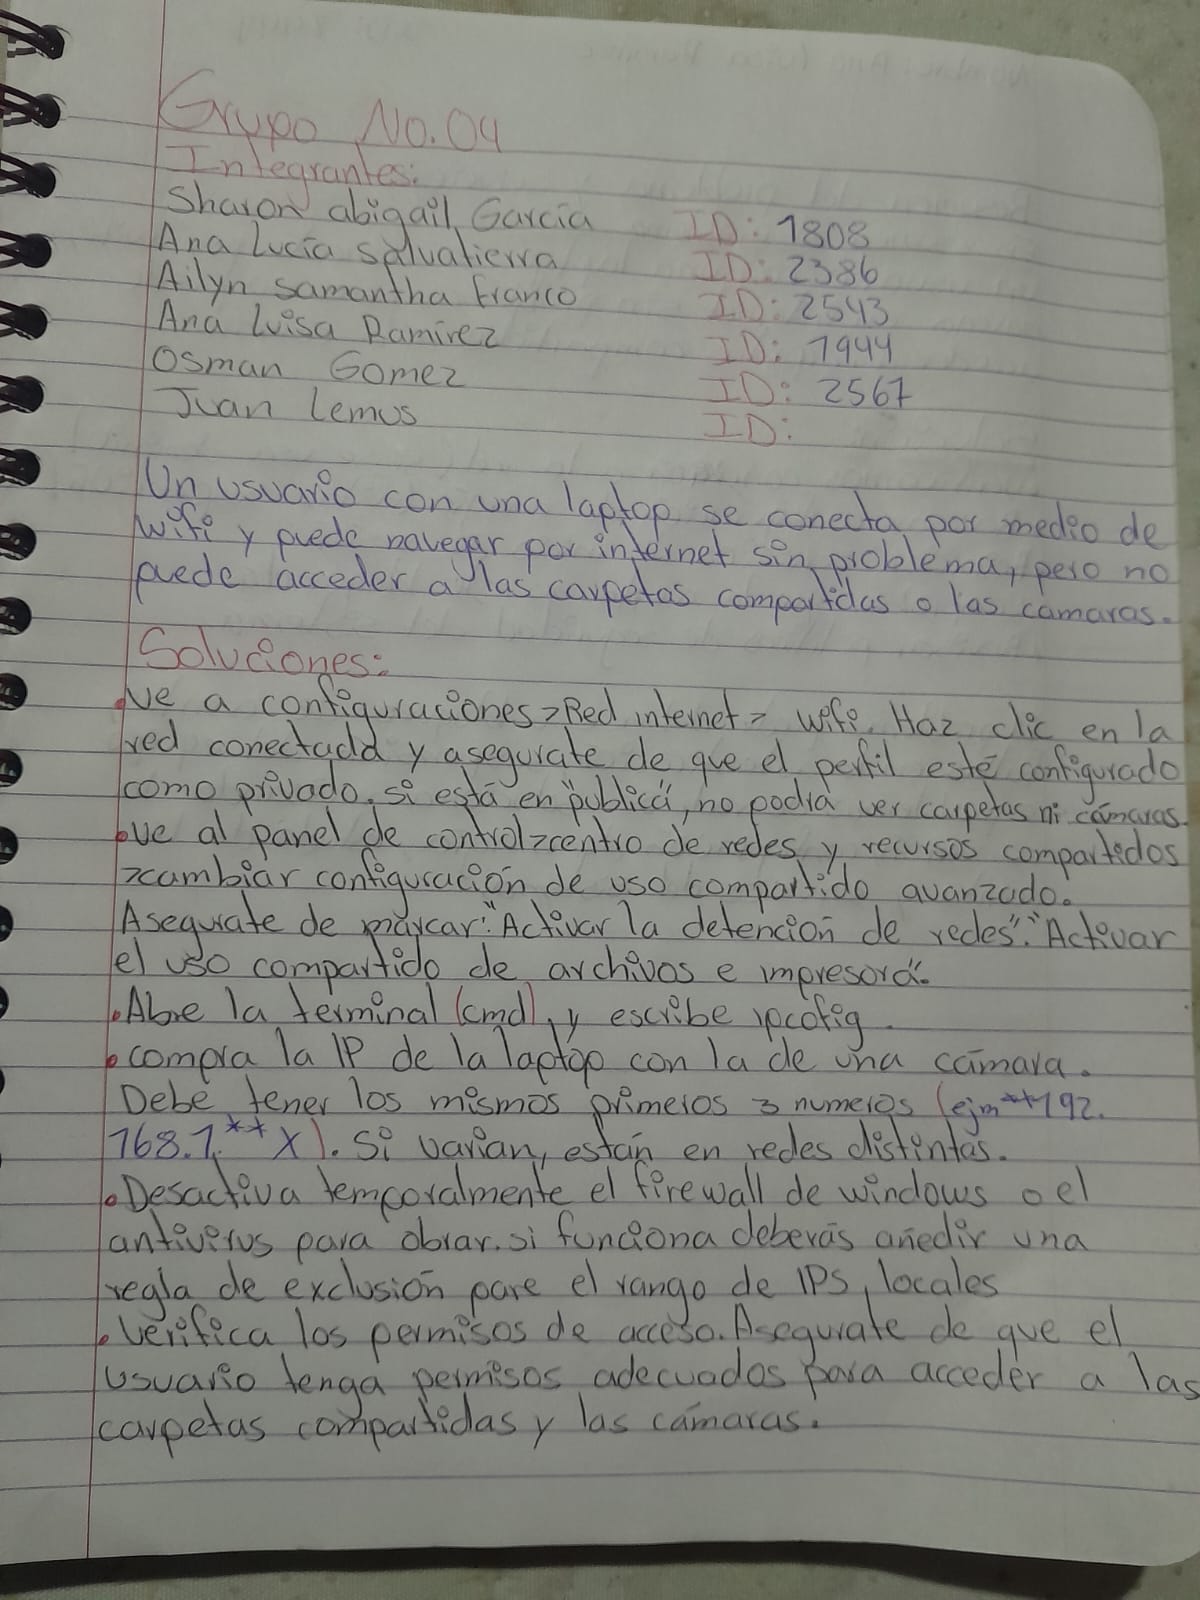 Grupo No.04
Integrantes:
Sharon abigail Garcia ID: 1808
Ana Lucía salvatierra ID: 2386
Ailyn samantha franco ID: 2543
Ana Luisa Ramirez ID: 1944
Osman Gomez ID: 2567
Juan Lemus ID:
Un usuario con una laptop se conecta por medio de
wifi y puede navegar por internet sin problema, pero no
puede acceder a las carpetas compartidas o las camaras.
Soluciones:
•Ve a configuraciones>Red internet> wifi. Haz clic en la
red conectada y asegurate de que el perfil esté configurado
como privado, si está en "publica", no podra ver carpetas ni cámaras.
•ve al panel de control>centro de redes y recursos compartidos
>cambiar configuración de uso compartido avanzado.
Asegurate de marcar: "Activar la detención de redes". "Activar
el uso compartido de archivos e impresora".
•Abre la terminal (cmd), y escribe ipcofig.
•compra la IP de la laptop con la de una cámara.
Debe tener los mismos primeros 3 numeros (ejm**192.
168.1.** X). Si varian, están en redes distintas.
•Desactiva temporalmente el firewall de windows o el
antivirus para obrar. si funciona deberás añedir una
regla de exclusión pare el rango de IPS, locales
•Verifica los permisos de acceso. Asegurate de que el
usuario tenga permisos adecuados para acceder a las
carpetas compartidas y las cámaras.